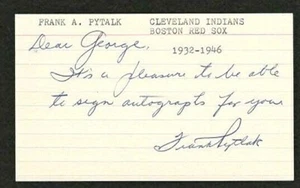 FRANK A. PYTALK CLEVELAND INDIANS
BOSTON RED SOX
Dear George, 1932-1946
It's a pleasure to be able
to sign autographs for you
Frank Pytlak